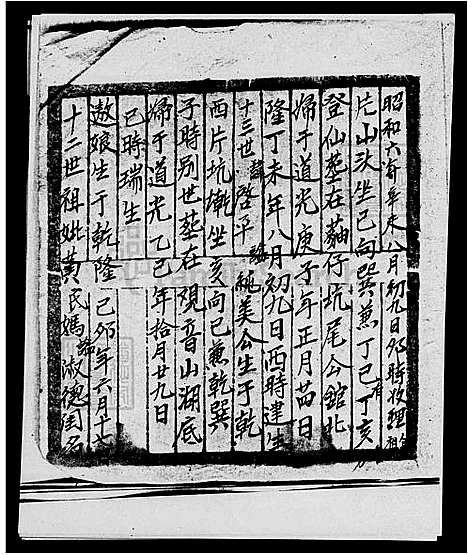 昭和六年辛未八月初九日卯時收理
片山汰坐已向巽兼丁已丁亥
登仙葬在菇仔坑尾公館北
婦于道光庚子年正月廿四日
隆丁未年八月初九日酉時建生
十三世諱啓平 諡純美公生于乾
西片坑乾坐亥向已兼乾巽
子時別世葬在視音山湖底
婦于道光乙已年拾月廿九日
已時瑞生
敖娘生于乾隆己卯年六月十七
十二世祖妣黃氏媽諡淑德閨名